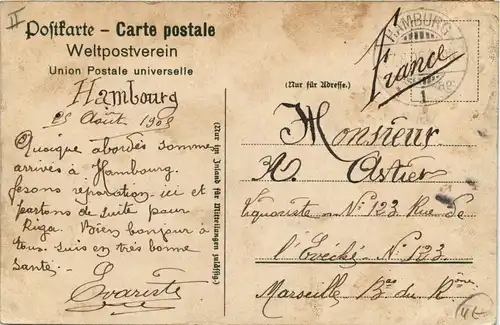 II
Postkarte – Carte postale
Weltpostverein
Union Postale universelle
Hambourg
25 Août 190
Quoique abordés sommes
arrivés à Hambourg.
fesons reparation ici et
partons de suite pour
Riga. Bien bonjour à
tous. suis en très bonne
santé.
Evariste
(Nur im Inland für Mitteilungen zulässig.)
HAMBURG
1
France
(Nur für Adresse.)
Monsieur
A. Astier
Liquoriste N° 123 Rue de
l'Evêché. N° 123
Marseille Bes du Rhône